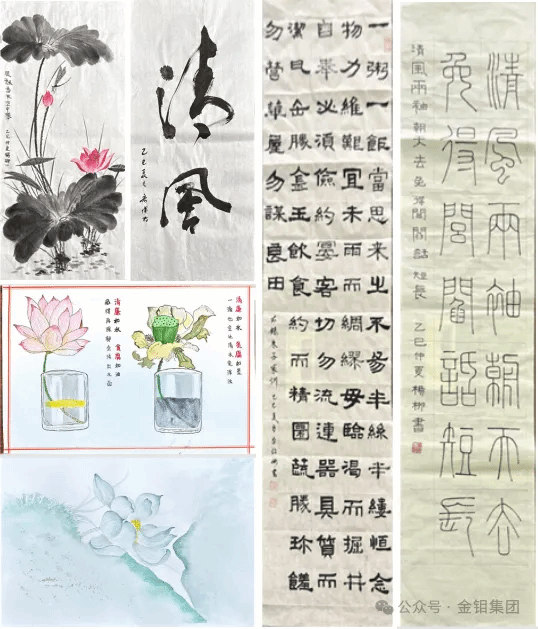 清風
乙巳夏月
清廉如水
一粥一飯當思来之不易半絲半縷恒念
物力維艱宜未雨而綢繆毋臨渴而掘井
自奉必須儉約宴客切勿流連器具質而
潔瓦缶勝金玉飲食約而精園蔬勝珍饈
勿營華屋勿謀良田
朱子家訓 乙巳夏月
清風兩袖朝天去
免得閭閻話短長
清風兩袖朝天去免得閭閻話短長 乙巳仲夏楊柳書
公众号·金钥集团